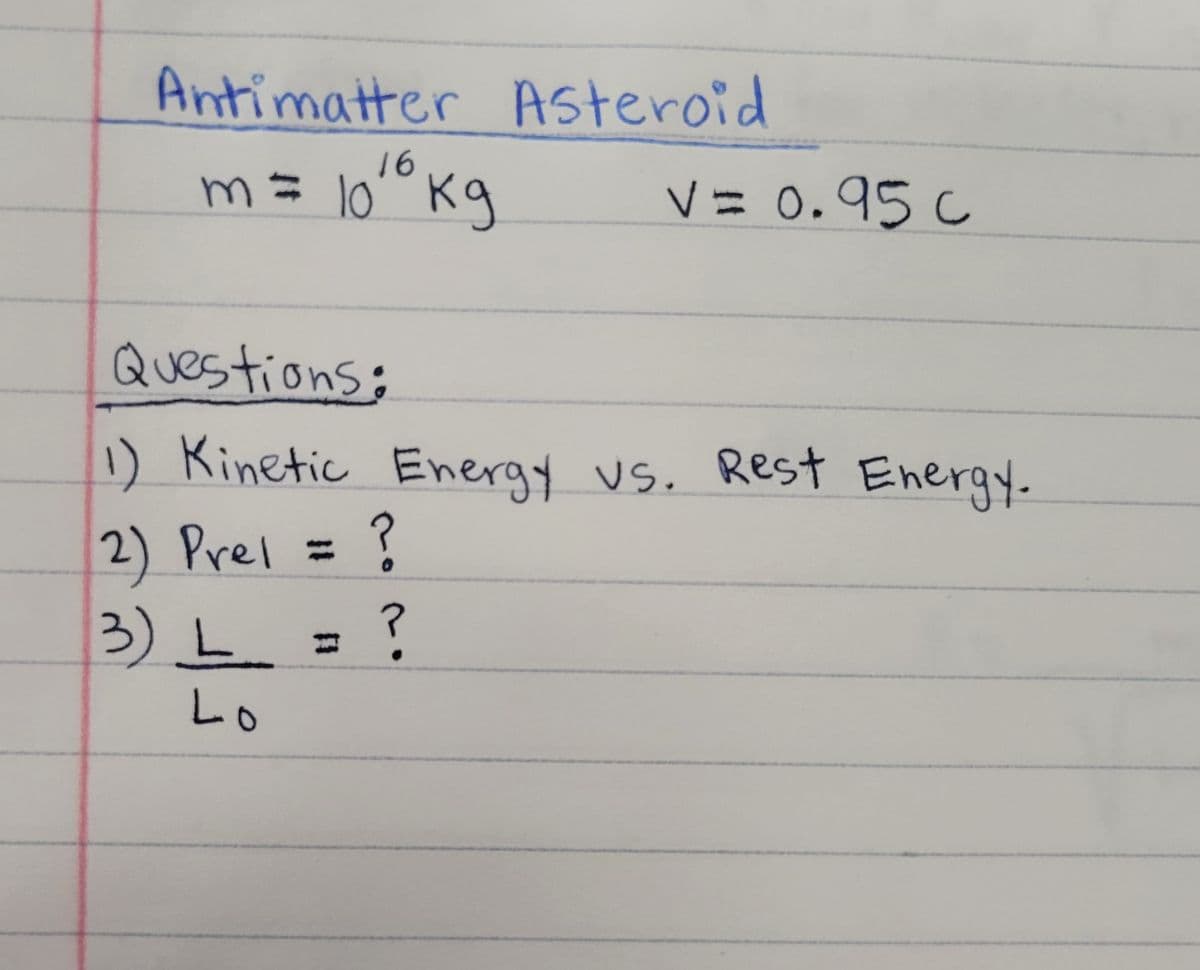 Antimatter Asteroid
m = 10¹⁶ Kg V = 0.95 c
Questions:
1) Kinetic Energy vs. Rest Energy.
2) Prel = ?
3) L = ?
Lo